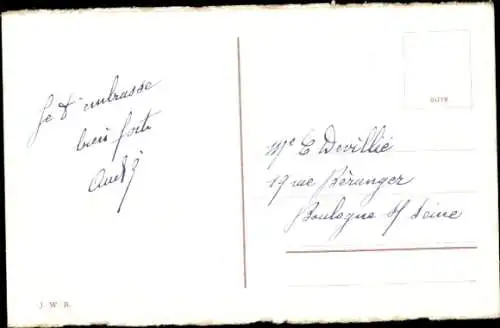 Je t'embrasse
bien forte
J. W. B.
Me E Devillié
19 rue Béranger
Boulogne S/ Seine